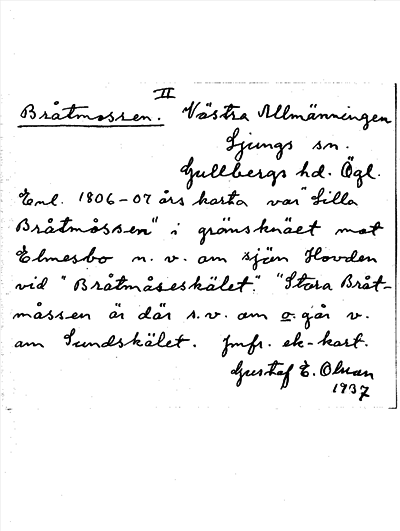 II
Bråtmossen. Västra Allmänningen
Ljungs sn.
Gullbergs hd. Ögl.
Enl. 1806-07 års karta var "Lilla
Bråtmåssen" i gränsknäet mot
Elmesbo n. v. om sjön Hovden
vid "Bråtmåseskälet". "Stora Bråt-
måssen är där s.v. om o. går v.
om Sundskälet. Jmfr. ek-kart.
Gustaf E. Olsson
1937